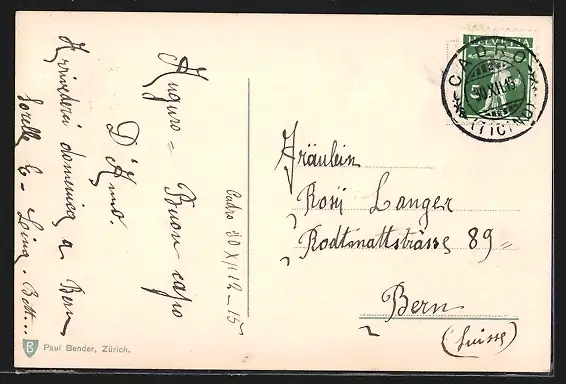 Auguro = Buon capo
D'Anno.
Arrivederci domenica a Bern
Sorelle
Cadro 30 XII 12-15
HELVETIA
5
CADRO
30.XII.15
(TICINO)
Fräulein
Rosij Langer
Rodtmattstrasse 89=
Bern
(Suisse)
B Paul Bender, Zürich.